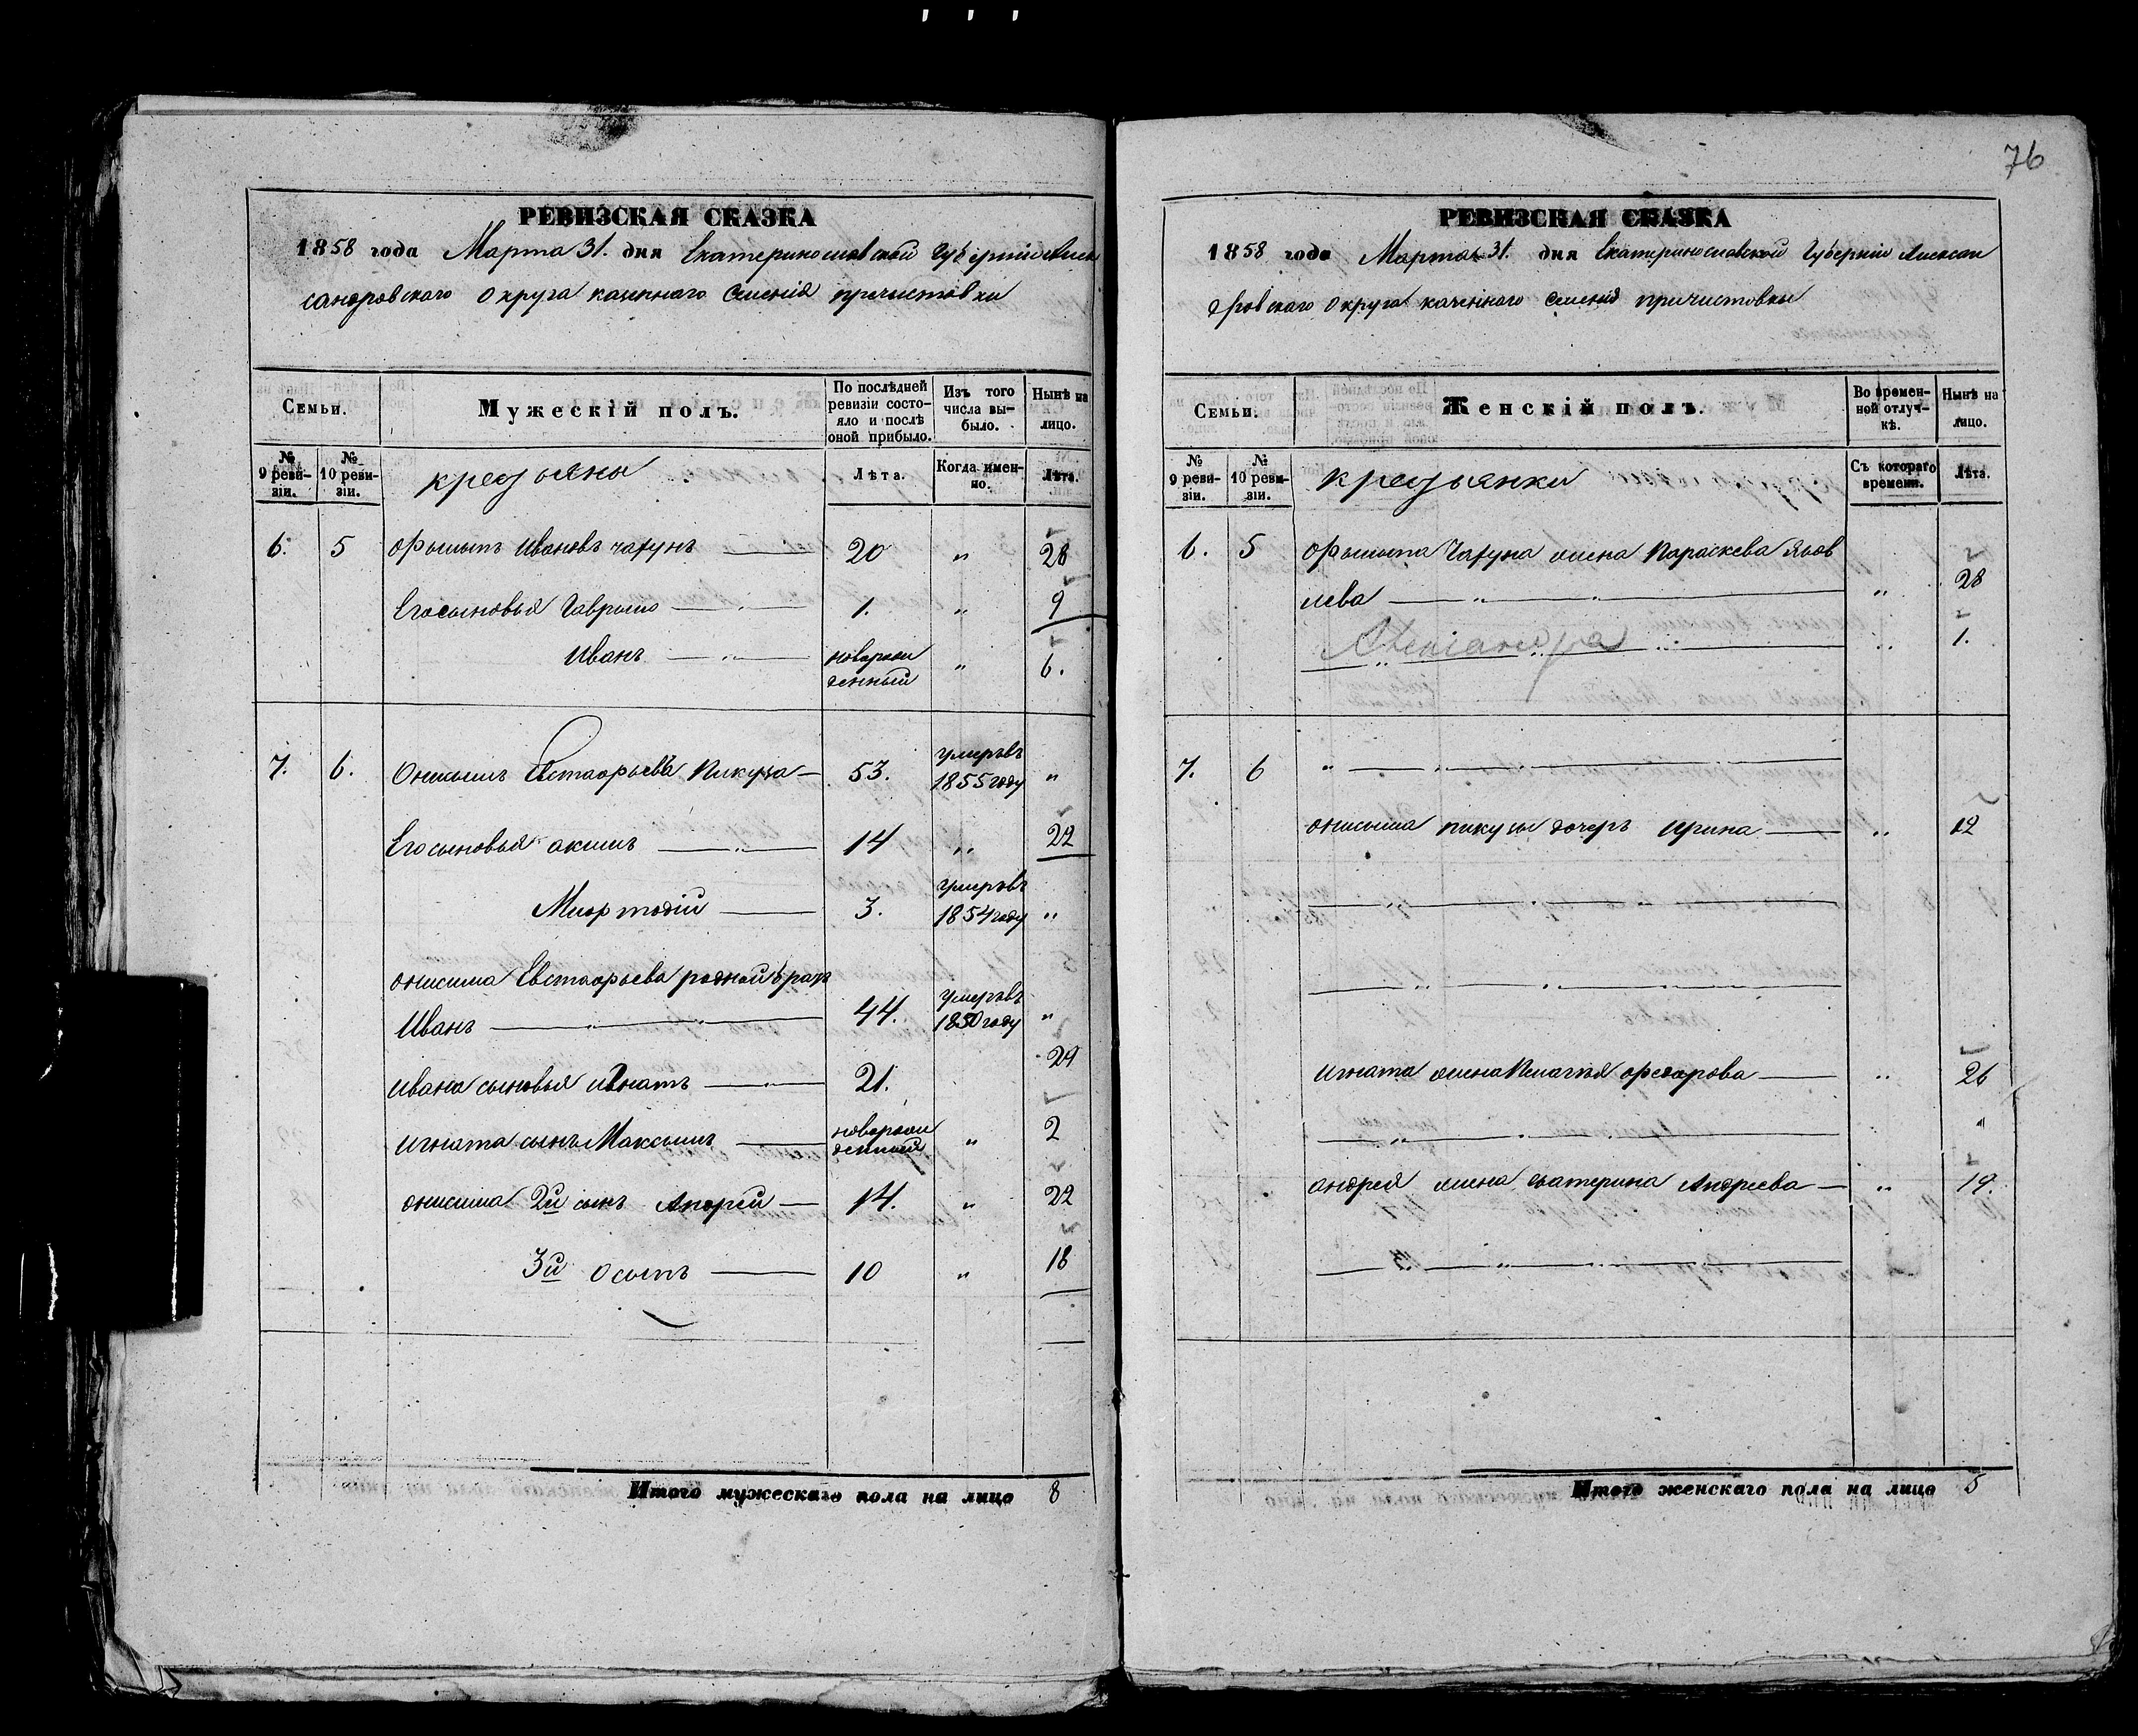 76
РЕВИЗСКАЯ СКАЗКА
1858 года Марта 31. дня Екатеринославской Губерніи Алек
сандровского округа казенного Селенія пречистовки
Семьи.
Мужескій полъ.
По послѣдней ревизіи состо-яло и послѣ оной прибыло.
Изъ того числа вы-было.
Нынѣ на лицо.
№ 9 реви-зіи.
№ 10 реви-зіи.
крестьяны
Лѣта.
Когда имен-но.
Лѣта.
6. 5 Филипъ Ивановъ 20 „ 28
Его сыновья Гаврыло 1. „ 9
Иванъ новорож денный „ 6.
7. 6. Онисимъ Евстафьевъ Пикуза 53. умеръ въ 1855 году „
Его сыновья акимъ 14 „ 22
3. умеръ въ 1854 году „
онисима Евстафьева родной братъ
Иванъ 44. умеръ въ 1850 году „
Ивана сыновья игнатъ 21. 29
игната сынъ Максимъ новорож денный „ 2
онисима 2й сынъ Андрей 14. „ 22
3й Осыпъ 10 „ 18
Итого мужескаго пола на лицо 8
РЕВИЗСКАЯ СКАЗКА
1858 года Марта 31. дня Екатеринославской Губерніи Алексан
дровского округа казенного Селенія причистовки
Семьи.
Женскій полъ.
Во времен-ной отлуч-кѣ.
Нынѣ на лицо.
№ 9 реви-зіи.
№ 10 реви-зіи.
крестьянки
Съ котораго времени.
Лѣта.
6. 5 жена Параскева Яков
лева „ 28
Александра „ 1.
7. 6 „ „ „
онисима пикузы дочеръ Ирина „ 12
„ „ „
„ „ „
Игната жена Пелагея федорова „ 26
„ „ „ „
андрея жена Екатерина Андреева „ 19.
„ „ „ „
Итого женскаго пола на лицо 5